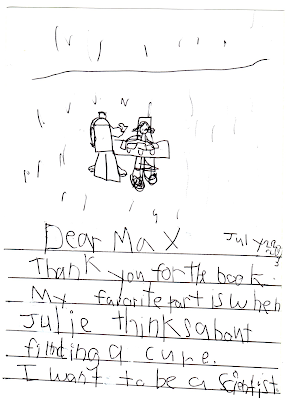 Dear Max
July
Thank you for the book.
My favorite part is when
Julie thinks about
finding a cure.
I want to be a scientist